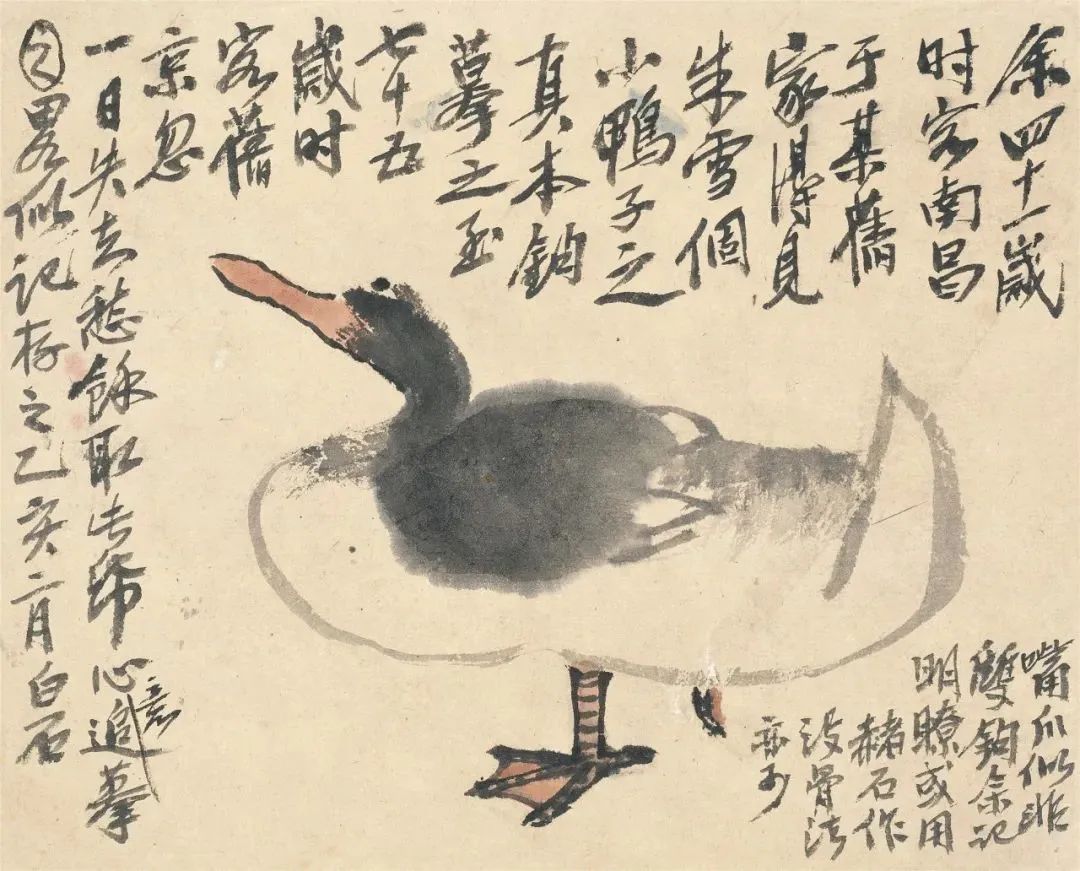 余四十一歲
时客南昌
于某舊
家得見
朱雪個
小鴨子之
真本鈎
摹之至
七十五
歲时
客舊
京忽
一日失去愁餘取此紙心意追摹
畧似記存之乙亥二月白石
嘴爪似非
雙鈎余記
明瞭或用
赭石作
没骨法
亦可